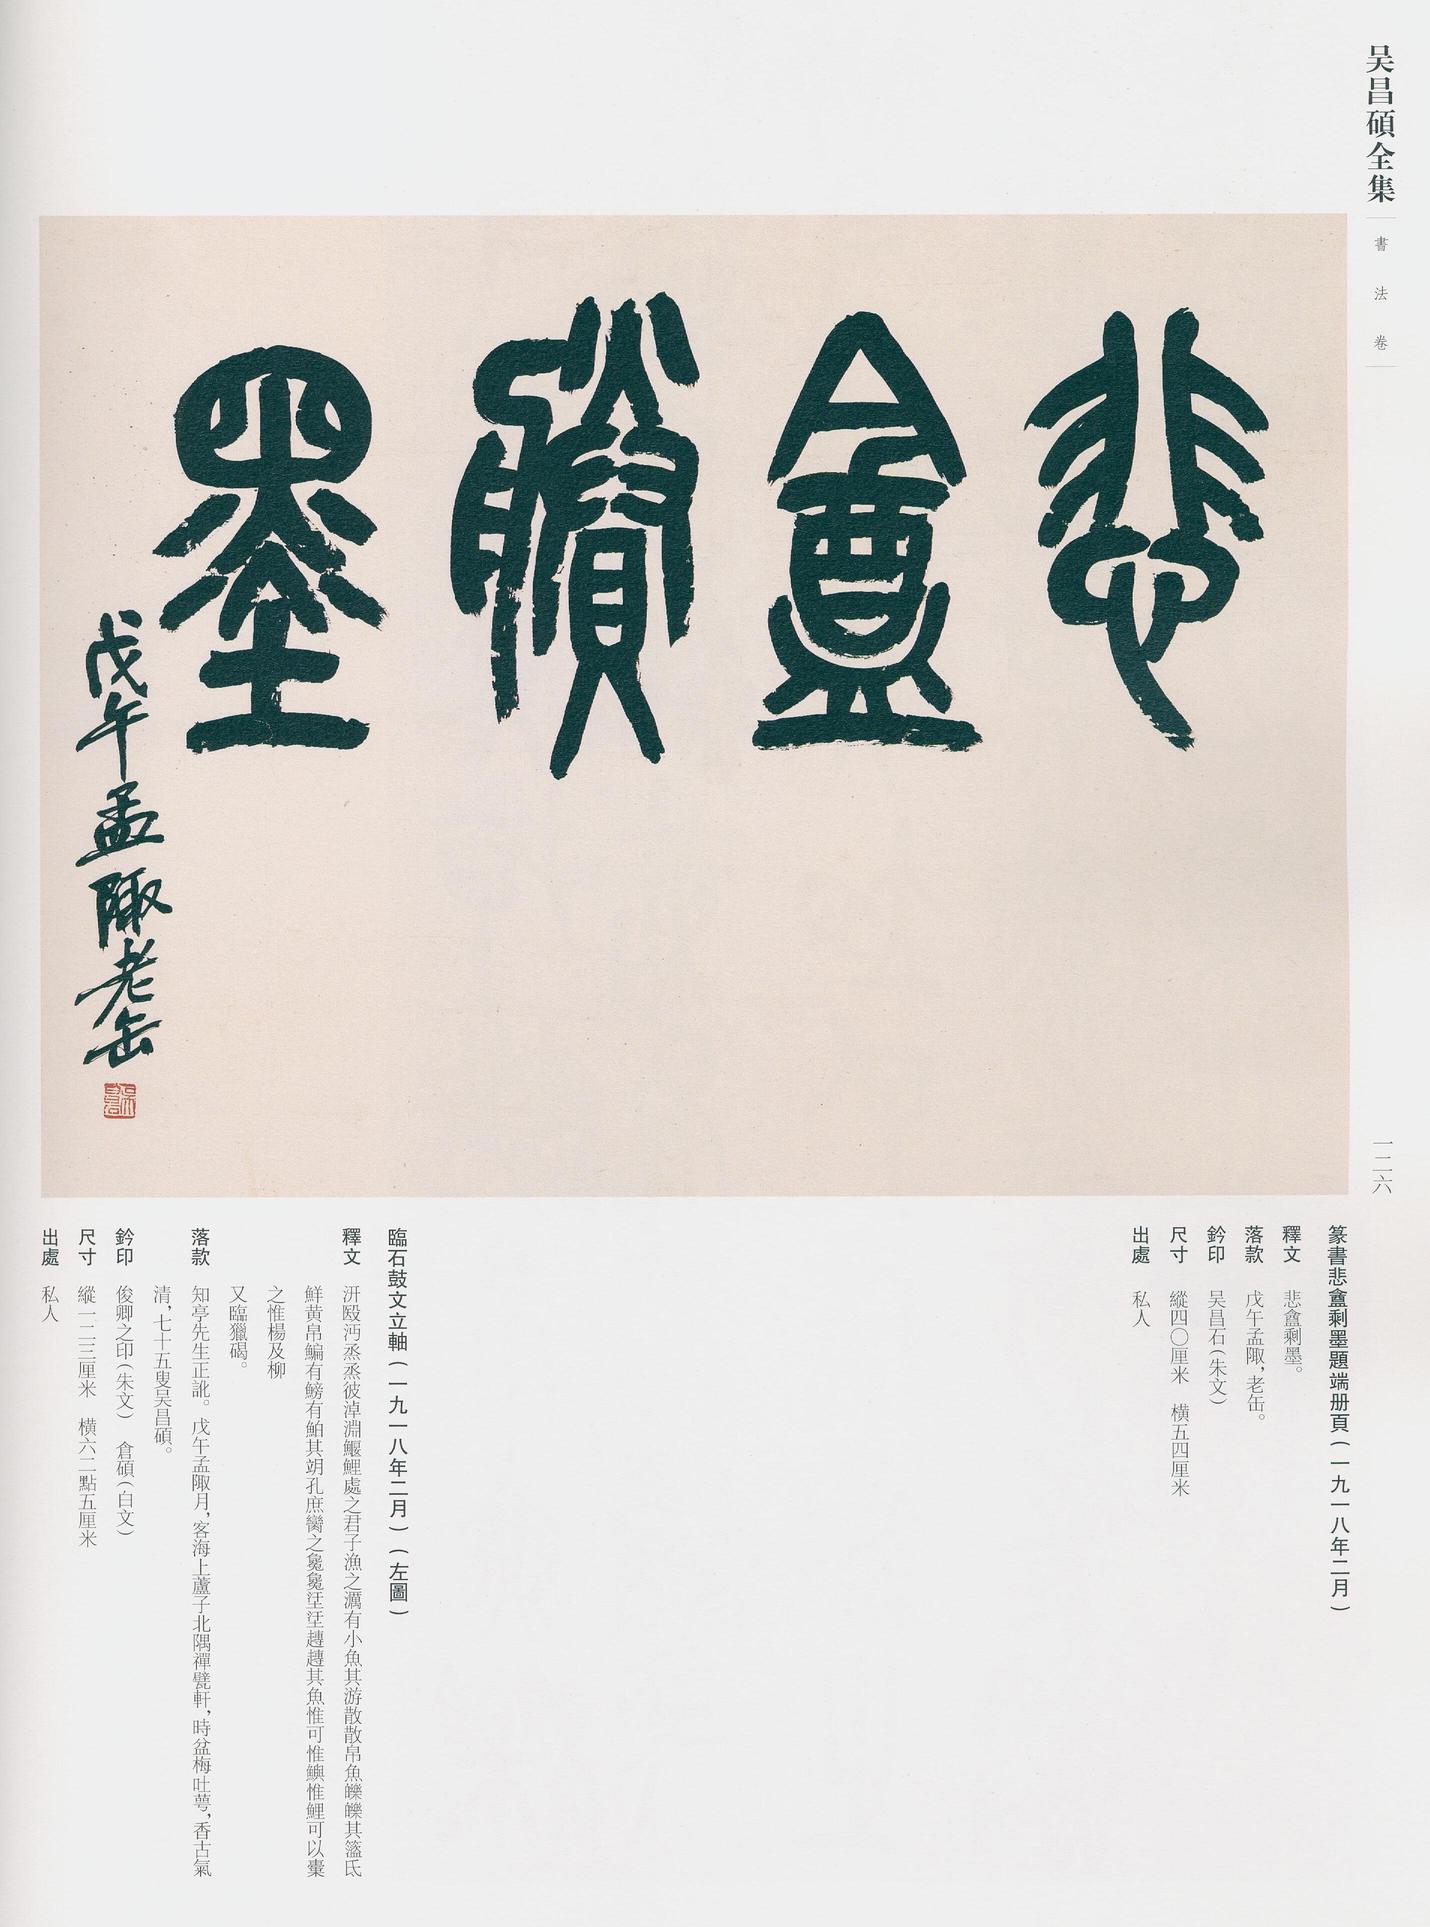 吴昌碩全集
書法卷
一二六
悲盦賸墨
戊午孟陬老缶
篆書悲盦剩墨題端册頁(一九一八年二月)
釋文 悲盦剩墨。
落款 戊午孟陬,老缶。
鈐印 吴昌石(朱文)
尺寸 縱四〇厘米 横五四厘米
出處 私人
臨石鼓文立軸(一九一八年二月)(左圖)
釋文 汧殹沔烝烝彼淖淵鰋鯉處之君子漁之澫有小魚其游散散帛魚皪皪其籃氐
鮮黄帛鯿有鰟有鲌其䏂孔庶臠之㲋㲋𣶃𣶃趮趮其魚惟可惟鱮惟鯉可以橐
之惟楊及柳
又臨獵碣。
落款 知亭先生正訛。戊午孟陬月,客海上蘆子北隅禪甓軒,時盆梅吐萼,香古氣
清,七十五叟吴昌碩。
鈐印 俊卿之印(朱文) 倉碩(白文)
尺寸 縱一二三厘米 横六二點五厘米
出處 私人